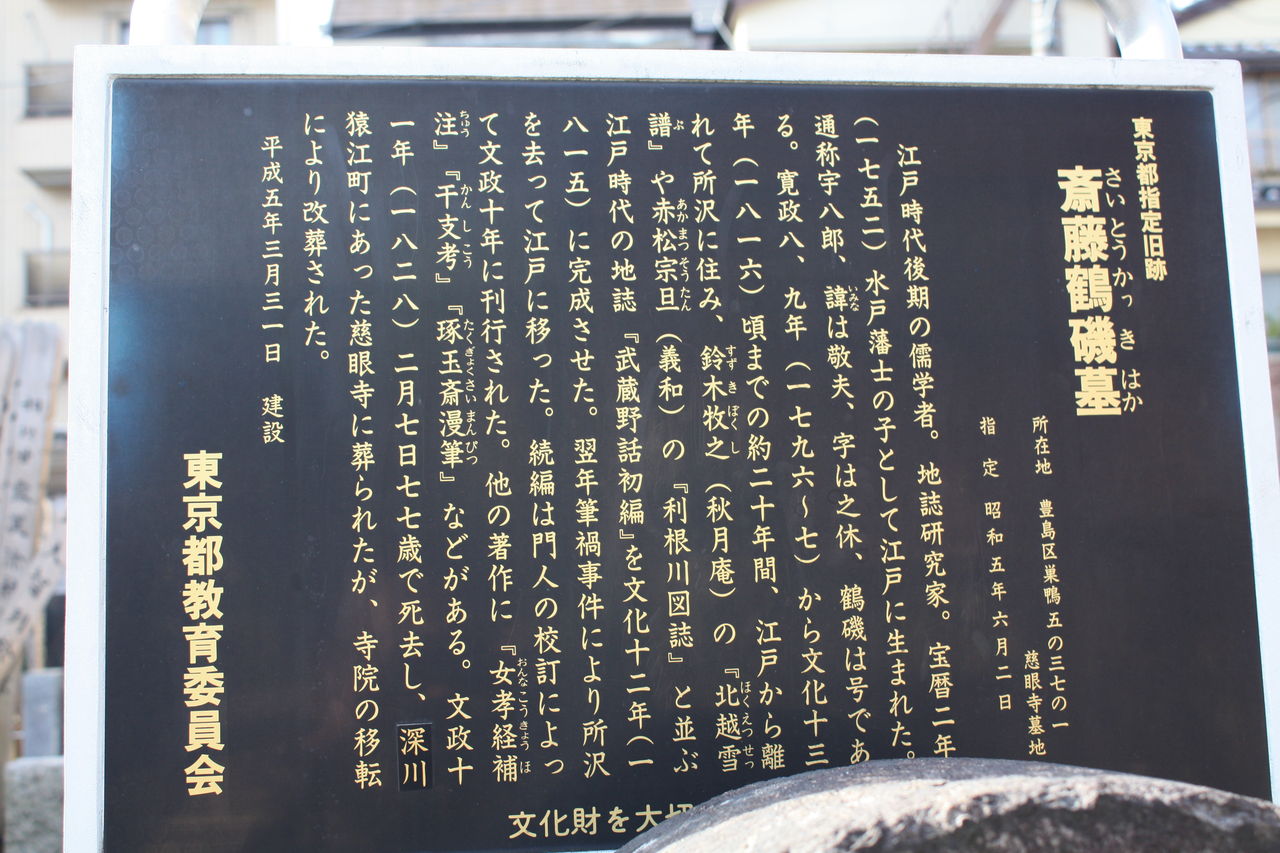 東京都指定旧跡
斎藤鶴磯墓
さいとうかっきはか
所在地 豊島区巣鴨五の三七の一
慈眼寺墓地
指定 昭和五年六月二日
江戸時代後期の儒学者。地誌研究家。宝暦二年
(一七五二)水戸藩士の子として江戸に生まれた。
通称宇八郎、諱は敬夫、字は之休、鶴磯は号であ
る。寛政八、九年(一七九六〜七)から文化十三
年(一八一六)頃までの約二十年間、江戸から離
れて所沢に住み、鈴木牧之(秋月庵)の『北越雪
譜』や赤松宗旦(義和)の『利根川図誌』と並ぶ
江戸時代の地誌『武蔵野話初編』を文化十二年(一
八一五)に完成させた。翌年筆禍事件により所沢
を去って江戸に移った。続編は門人の校訂によっ
て文政十年に刊行された。他の著作に『女孝経補
注』『干支考』『琢玉斎漫筆』などがある。文政十
一年(一八二八)二月七日七七歳で死去し、深川
猿江町にあった慈眼寺に葬られたが、寺院の移転
により改葬された。
平成五年三月三一日 建設
東京都教育委員会
文化財を大切